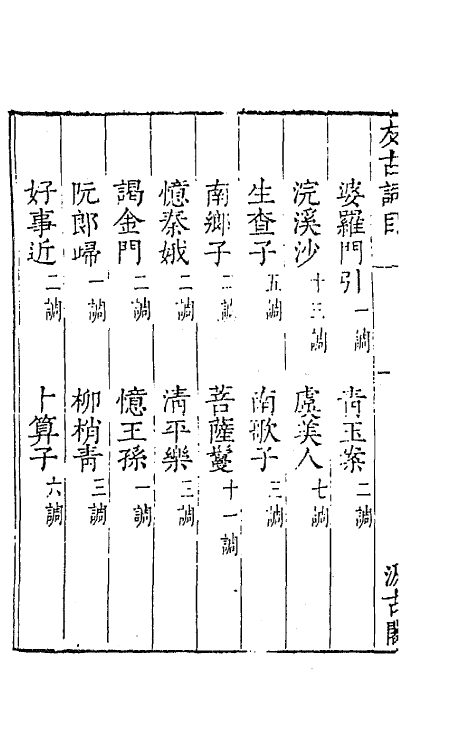 友古詞目
汲古閣
婆羅門引一調 青玉案二調
浣溪沙十三調 虞美人七調
生查子五調 南歌子三調
南鄉子二調 菩薩鬘十一調
憶秦娥二調 清平樂三調
謁金門二調 憶王孫一調
阮郎歸一調 柳梢青三調
好事近二調 卜算子六調